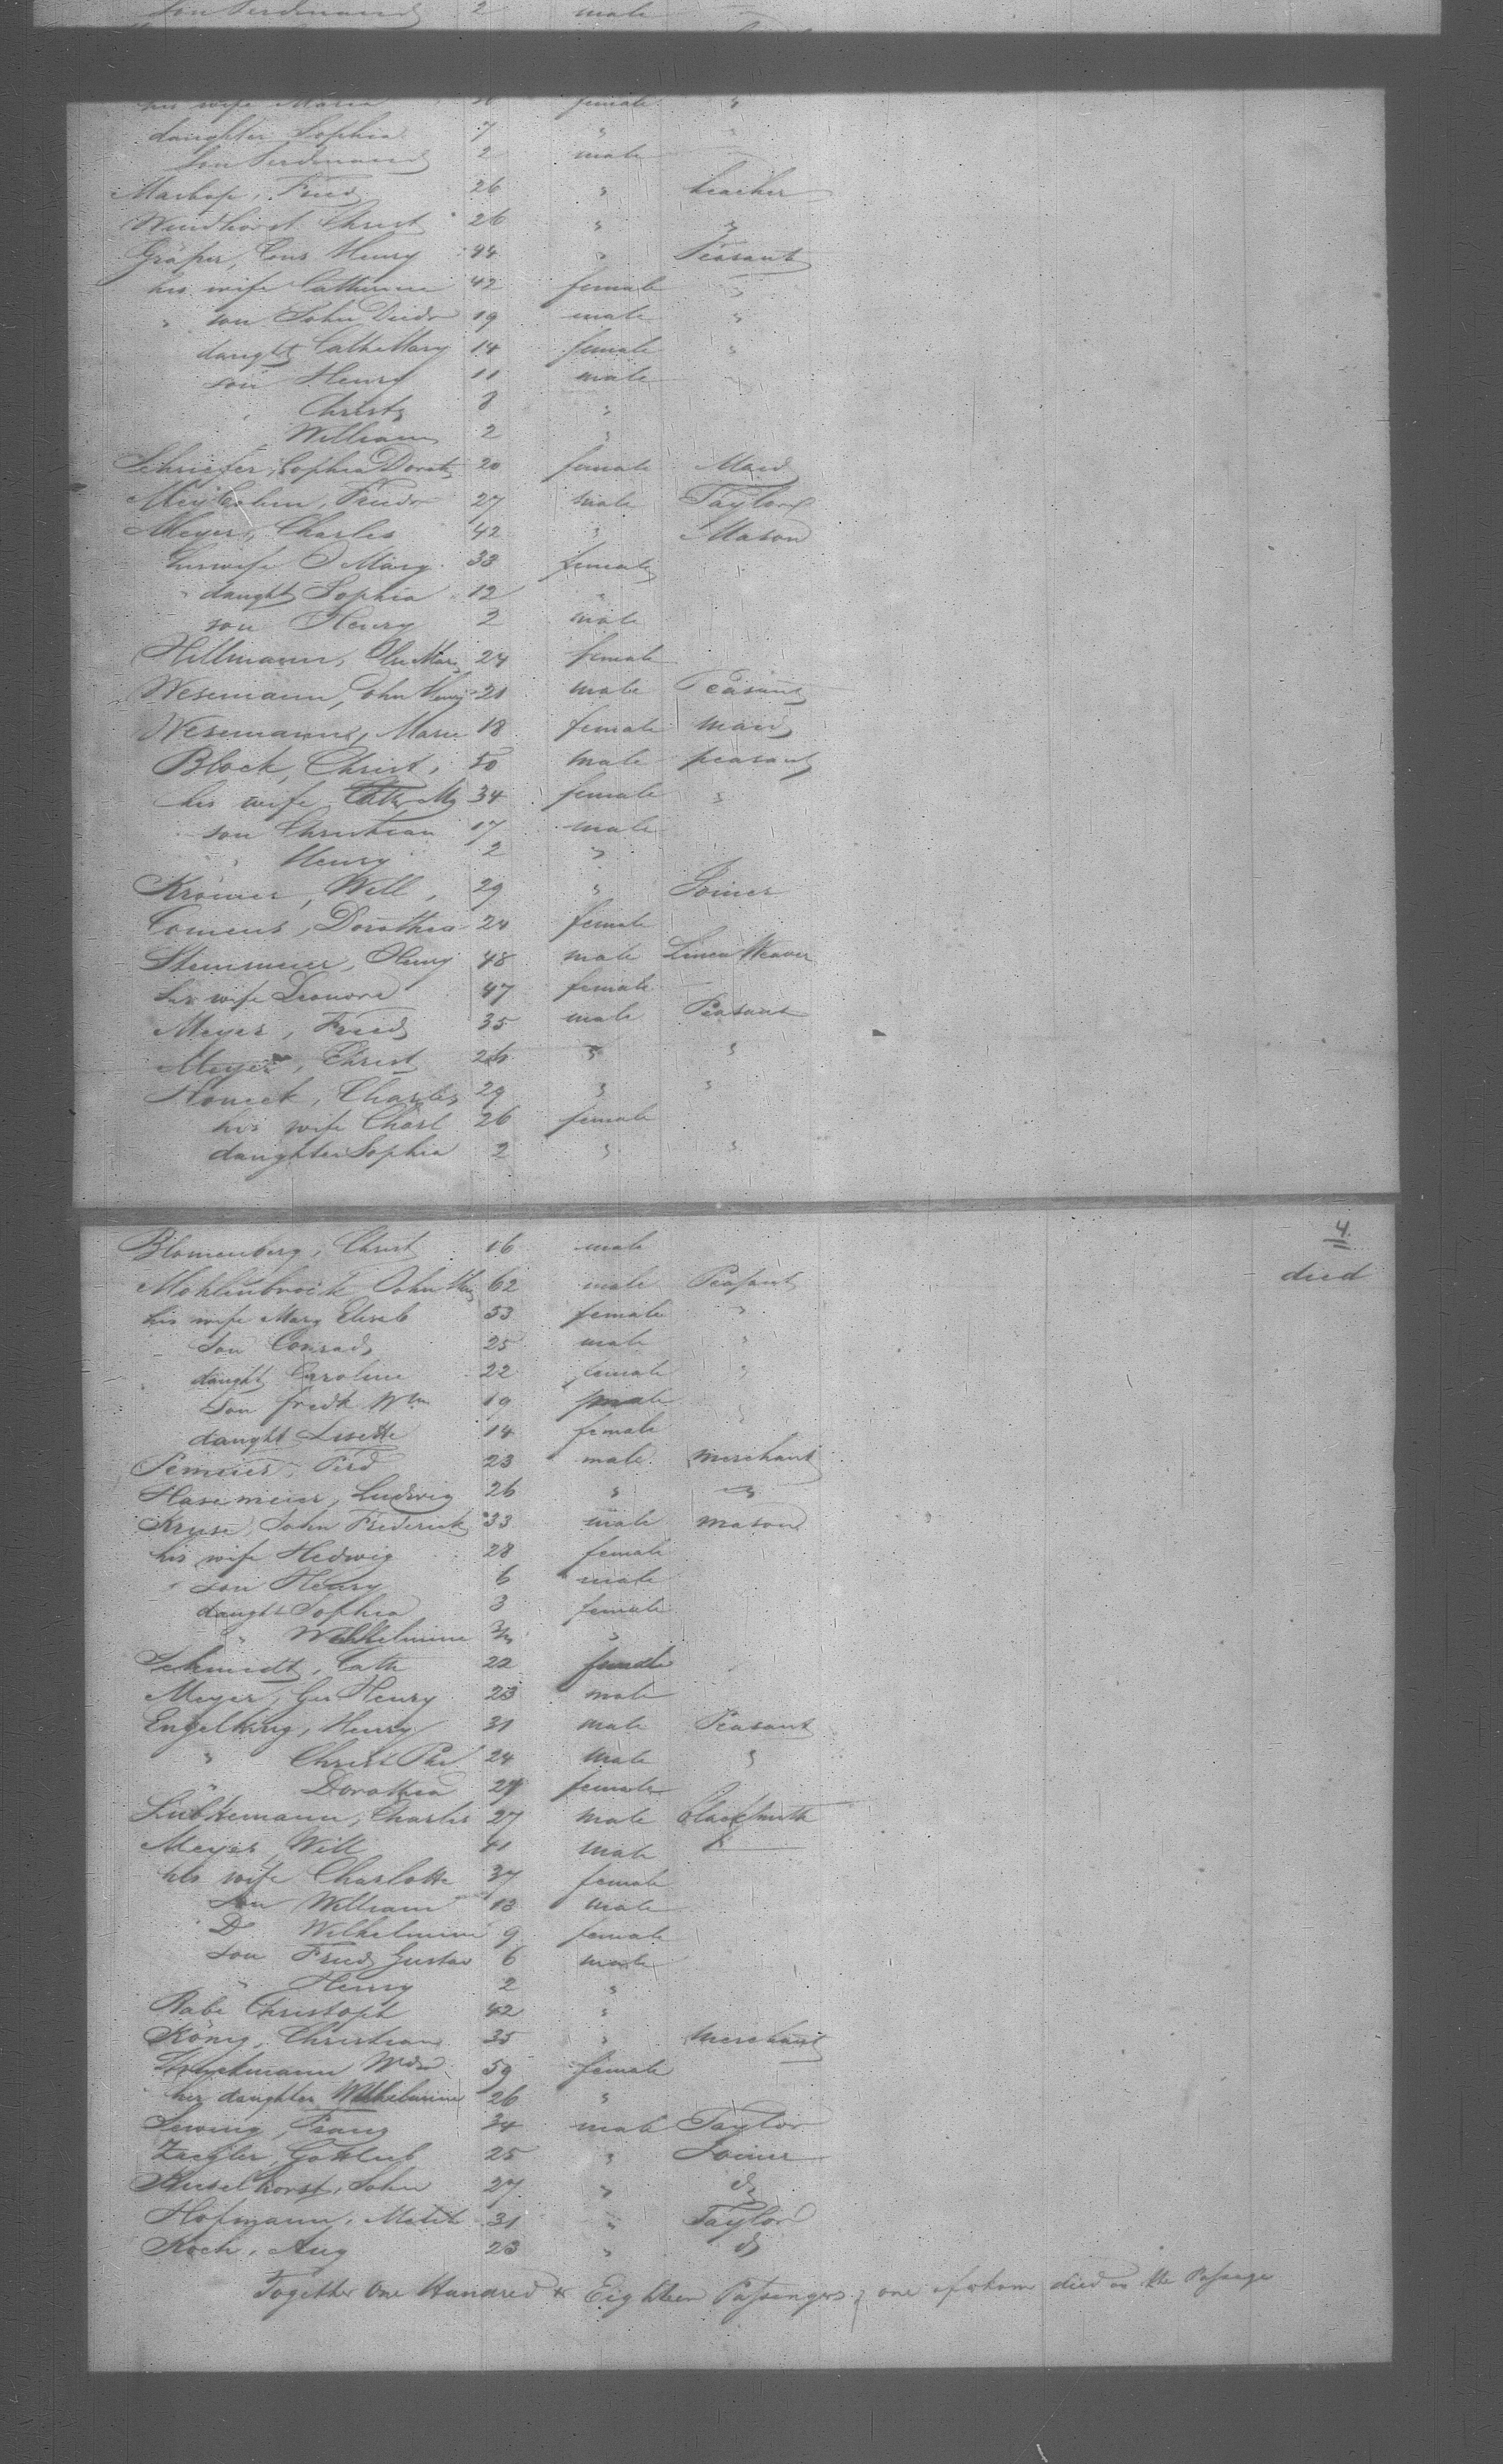 Son Ferdinand 2 male
his wife Maria female "
daughter Sophia 7 " "
Son Ferdinand 2 male
Fried 26 " teacher
Windhorst Christ 26 " "
Gräper, Conr Henry 44 " Peasant
his wife Catherine 42 female "
" son John Diedr 19 male "
daught Cath Mary 14 female "
son Henry 11 male
" Christ 8 "
William 2 "
Schriefer, Sophia Doroth 20 female Maid
Friedr 27 male Taylor
Meyer, Charles 42 " Mason
his wife Mary 33 female
" daught Sophia 12 "
son Henry 2 male
Hillmann, 24 female
Wesemann, John Henry 21 male Peasant
Wesemann, Marie 18 female maid
Block, Christ, 50 male peasant
his wife Cath M 34 female "
son Christian 17 male
" Henry 2 "
Krömer, Will, 29 " Joiner
Dorothea 24 female
Henry 48 male Linen Weaver
his wife Leonore 47 female
Meyer, Fried 35 male Peasant
Meyer, Christ 26 " "
Charles 29 " "
his wife Charl 26 female
daughter Sophia 2 " "
4.
Blomenberg, Christ 16 male
Mohlenbrock John 62 male Peasant died
his wife Mary Elisab 53 female "
Son Conrad 25 male "
" daught Caroline 22 female "
Son fredk Wm 19 male "
daught Lisette 14 female
Ferd 23 male merchant
Hasemeier, Ludwig 26 " "
Kruse, John Frederick 33 male mason
his wife Hedwig 28 female
" son Henry 6 male
daught Sophia 3 female
" Wilhelmine "
Schmidt, Cath 22 female
Meyer, Henry 23 male
Engelking, Henry 31 male Peasant
" Christ 24 male "
" Dorothea 29 female
Lübkemann, Charles 27 male blacksmith
Meyer, Will 41 male
his wife Charlotte 37 female
Son William 13 male
D Wilhelmine 9 female
Son Fried Gustav 6 male
" Henry 2 "
Rabe Christoph 42 "
König, Christian 35 " Merchant
Wdw 59 female
her daughter Wilhelmine 26 "
Franz 34 male Taylor
Gottlieb 25 " Joiner
John 27 " do
Hofmann, 31 " Taylor
Koch, Aug 23 " do
Together One Hundred & Eighteen Passengers; one of whom died on the Passage